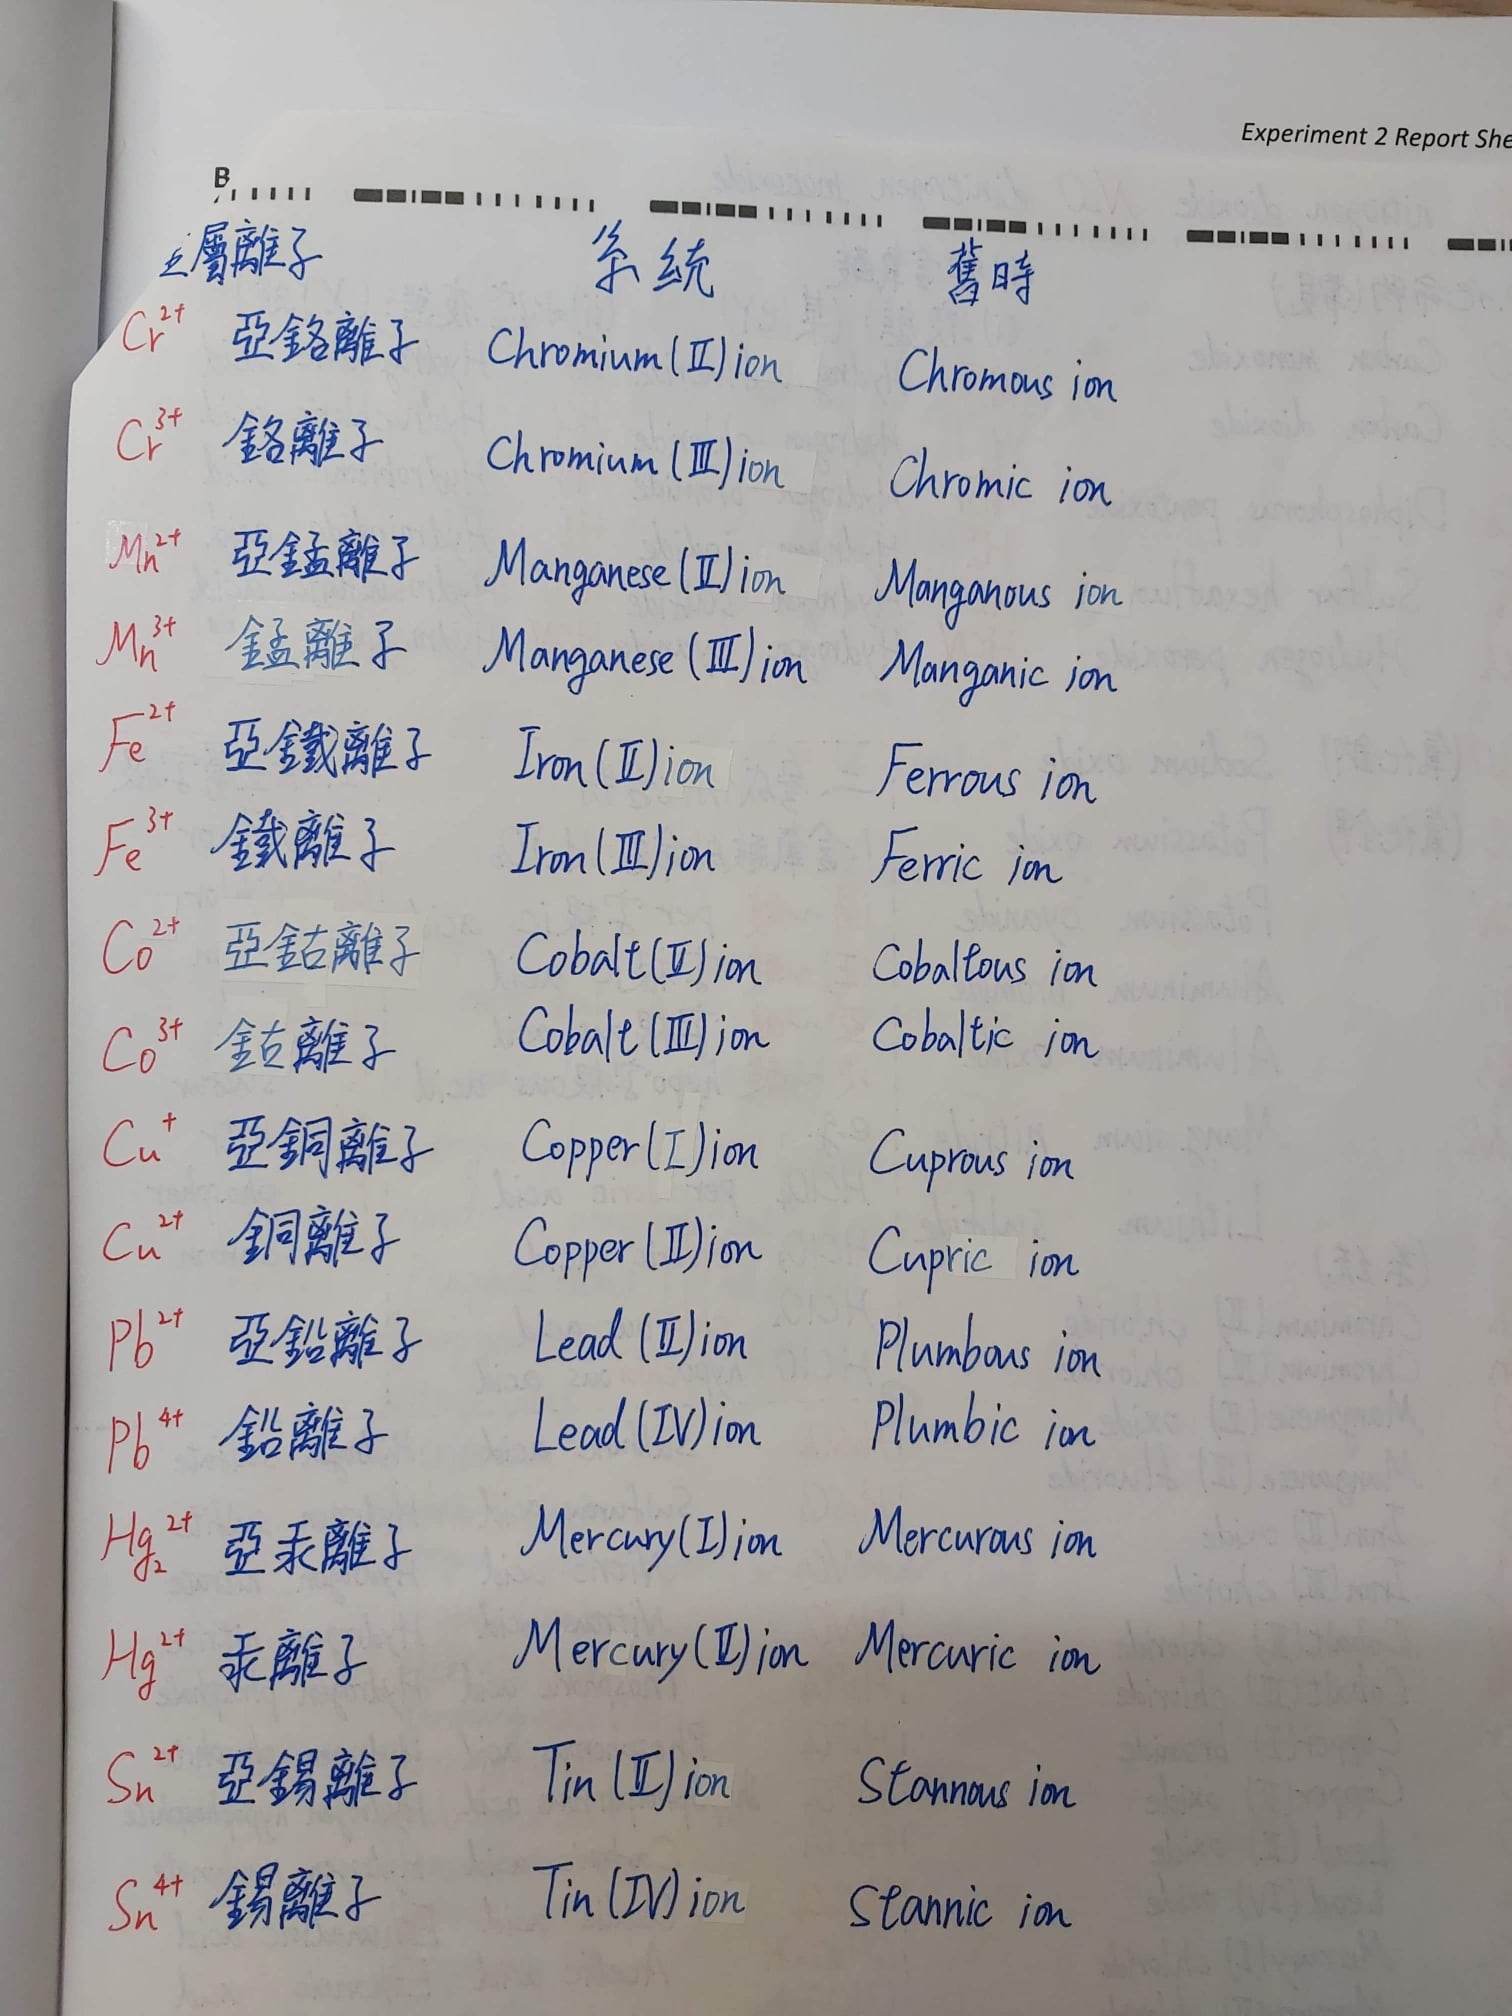 Experiment 2 Report She
B
金屬離子 系統 舊時
Cr²⁺ 亞鉻離子 Chromium(II)ion Chromous ion
Cr³⁺ 鉻離子 Chromium(III)ion Chromic ion
Mn²⁺ 亞錳離子 Manganese(II)ion Manganous ion
Mn³⁺ 錳離子 Manganese(III)ion Manganic ion
Fe²⁺ 亞鐵離子 Iron(II)ion Ferrous ion
Fe³⁺ 鐵離子 Iron(III)ion Ferric ion
Co²⁺ 亞鈷離子 Cobalt(II)ion Cobaltous ion
Co³⁺ 鈷離子 Cobalt(III)ion Cobaltic ion
Cu⁺ 亞銅離子 Copper(I)ion Cuprous ion
Cu²⁺ 銅離子 Copper(II)ion Cupric ion
Pb²⁺ 亞鉛離子 Lead(II)ion Plumbous ion
Pb⁴⁺ 鉛離子 Lead(IV)ion Plumbic ion
Hg₂²⁺ 亞汞離子 Mercury(I)ion Mercurous ion
Hg²⁺ 汞離子 Mercury(II)ion Mercuric ion
Sn²⁺ 亞錫離子 Tin(II)ion Stannous ion
Sn⁴⁺ 錫離子 Tin(IV)ion Stannic ion